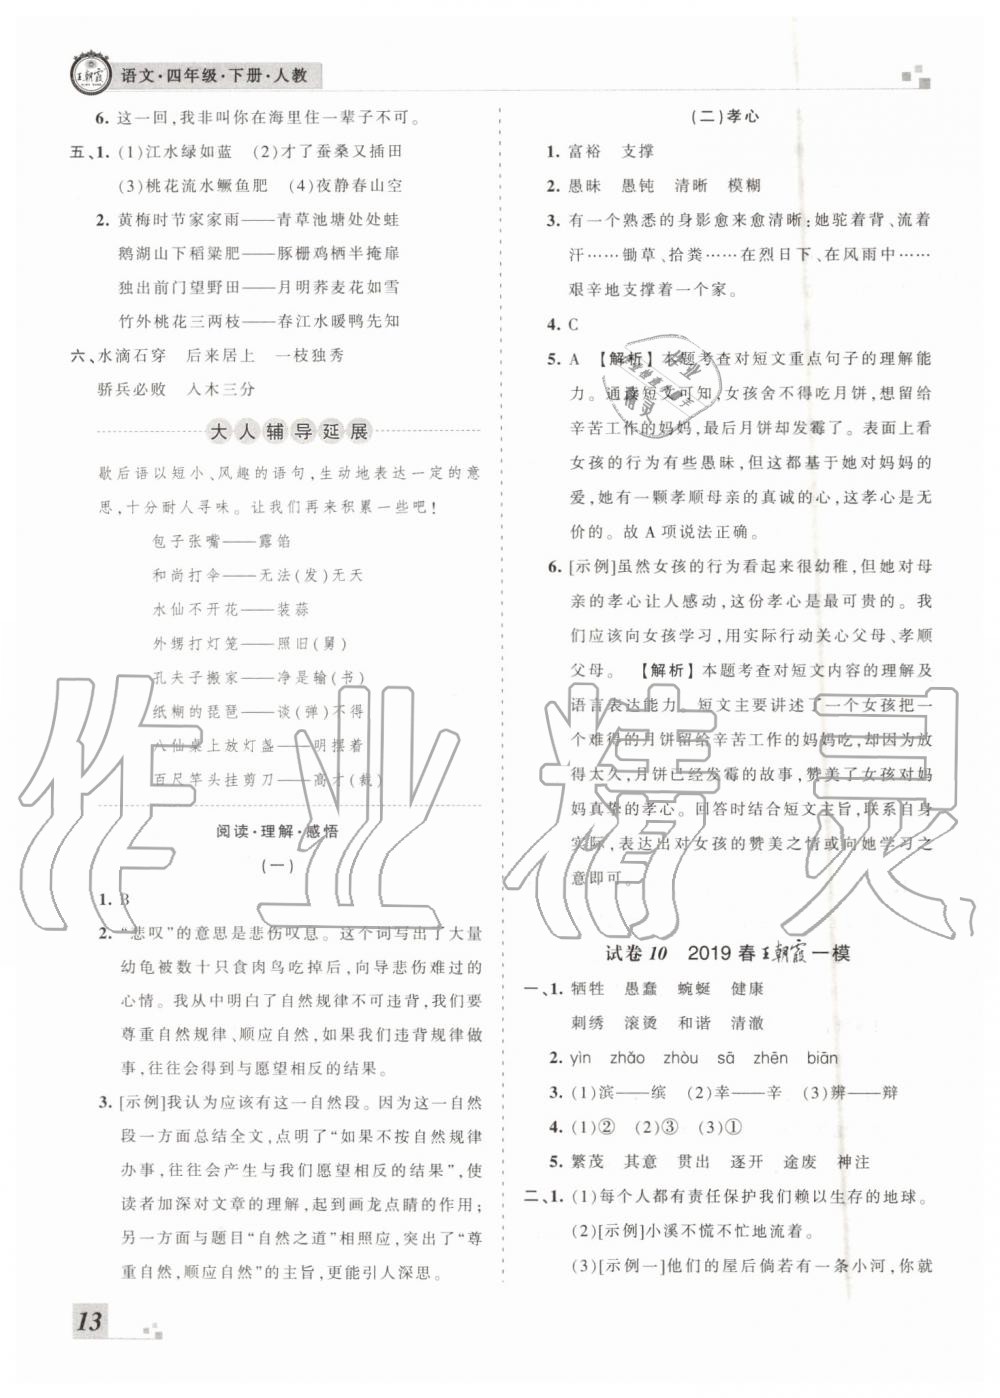 王朝霞
语文·四年级·下册·人教
6. 这一回,我非叫你在海里住一辈子不可。
五、1. (1)江水绿如蓝 (2)才了蚕桑又插田
(3)桃花流水鳜鱼肥 (4)夜静春山空
2. 黄梅时节家家雨——青草池塘处处蛙
鹅湖山下稻粱肥——豚栅鸡栖半掩扉
独出前门望野田——月明荞麦花如雪
竹外桃花三两枝——春江水暖鸭先知
六、水滴石穿 后来居上 一枝独秀
骄兵必败 入木三分
大人辅导延展
歇后语以短小、风趣的语句,生动地表达一定的意
思,十分耐人寻味。让我们再来积累一些吧!
包子张嘴——露馅
和尚打伞——无法(发)无天
水仙不开花——装蒜
外甥打灯笼——照旧(舅)
孔夫子搬家——净是输(书)
纸糊的琵琶——谈(弹)不得
八仙桌上放灯盏——明摆着
百尺竿头挂剪刀——高才(裁)
阅读·理解·感悟
(一)
1. B
2. “悲叹”的意思是悲伤叹息。这个词写出了大量
幼龟被数十只食肉鸟吃掉后,向导悲伤难过的
心情。我从中明白了自然规律不可违背,我们要
尊重自然规律、顺应自然,如果我们违背规律做
事,往往会得到与愿望相反的结果。
3. [示例]我认为应该有这一自然段。因为这一自然
段一方面总结全文,点明了“如果不按自然规律
办事,往往会产生与我们愿望相反的结果”,使
读者加深对文章的理解,起到画龙点睛的作用;
另一方面与题目“自然之道”相照应,突出了“尊
重自然,顺应自然”的主旨,更能引人深思。
13
(二)孝心
1. 富裕 支撑
2. 愚昧 愚钝 清晰 模糊
3. 有一个熟悉的身影愈来愈清晰:她驼着背、流着
汗……锄草、拾粪……在烈日下、在风雨中……
艰辛地支撑着一个家。
4. C
5. A 【解析】本题考查对短文重点句子的理解能
力。通读短文可知,女孩舍不得吃月饼,想留给
辛苦工作的妈妈,最后月饼却发霉了。表面上看
女孩的行为有些愚昧,但这都基于她对妈妈的
爱,她有一颗孝顺母亲的真诚的心,这爱是无
价的。故 A 项说法正确。
6. [示例]虽然女孩的行为看起来很幼稚,但她对母
亲的孝心让人感动,这份孝心是最可贵的。我
们应该向女孩学习,用实际行动关心父母、孝顺
父母。 【解析】本题考查对短文内容的理解及
语言表达能力。短文主要讲述了一个女孩把一
个难得的月饼留给辛苦工作的妈妈吃,却因为留
得太久,月饼已经发霉的故事,赞美了女孩对妈
妈真挚的孝心。回答时结合短文主旨,联系自身
实际,表达出对女孩的赞美之情或向她学习之
意即可。
试卷 10 2019 春王朝霞一模
一、1. 牺牲 愚蠢 蜿蜒 健康
刺绣 滚烫 和谐 清澈
2. yìn zhǎo zhòu sā zhēn biān
3. (1)滨——缤 (2)幸——辛 (3)辨——辩
4. (1)② (2)③ (3)①
5. 繁茂 其意 贯出 逐开 途废 神注
二、1. (1)每个人都有责任保护我们赖以生存的地球。
(2)[示例]小溪不慌不忙地流着。
(3)[示例一]他们的屋后倘若有一条小河,你就
作业精灵